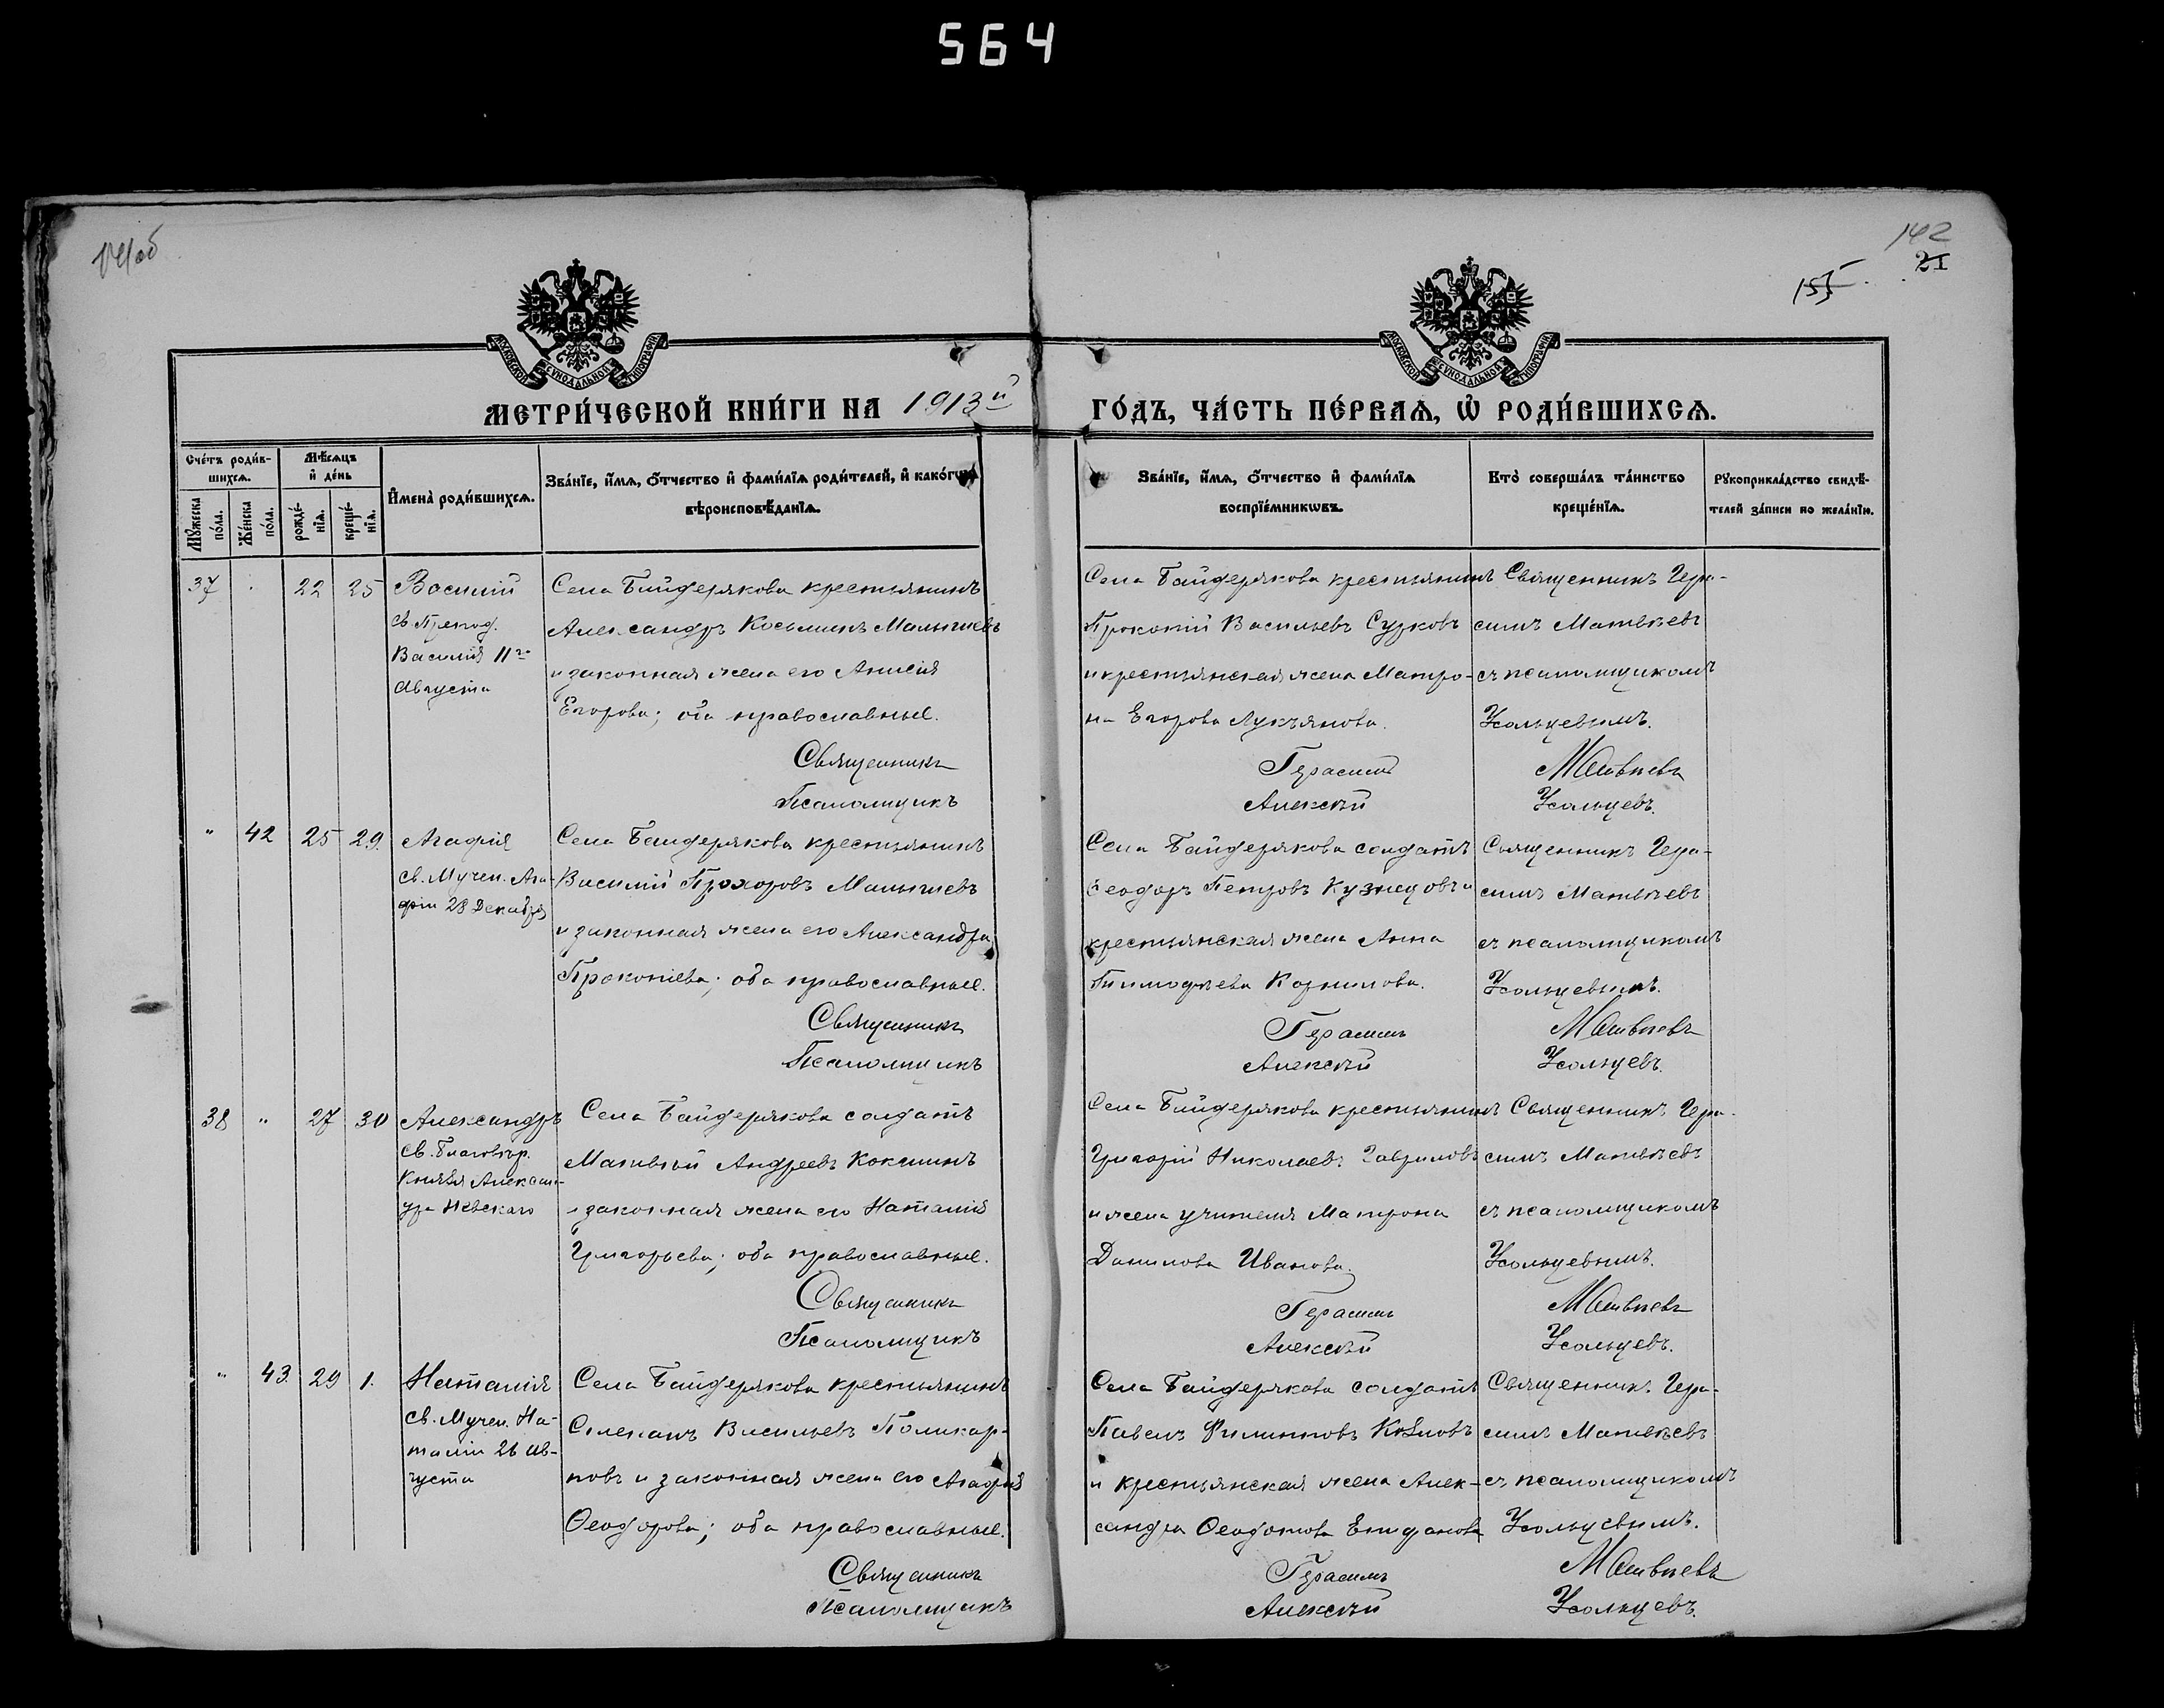 564
141об
142
21
155
МОСКОВСКОЙ СѴНОДАЛЬНОЙ ТИПОГРАФІИ
МОСКОВСКОЙ СѴНОДАЛЬНОЙ ТИПОГРАФІИ
МЕТРИ́ЧЕСКОЙ КНИ́ГИ НА 1913й
ГО́ДЪ, ЧА́СТЬ ПЕ́РВАѦ, Ѡ҆ РОДИ́ВШИХСѦ.
Сче́тъ роди́в-
шихсѧ.
Мꙋ́жеска
по́ла.
Же́нска
по́ла.
Мѣ́сѧцъ
и҆ де́нь
рожде́-
нїѧ.
креще́-
нїѧ.
И҆мена̀ роди́вшихсѧ.
Зва́нїе, и҆́мѧ, ѻ҆́тчество и҆ фами́лїѧ роди́телей, и҆ како́гѡ
вѣроисповѣ́данїѧ.
Зва́нїе, и҆́мѧ, ѻ҆́тчество и҆ фами́лїѧ
воспрїе́мникѡвъ.
Кто̀ соверша́лъ та́инство
креще́нїѧ.
Рꙋкоприкла́дство свидѣ́-
телей за́писи по жела́нїю.
37
22
25
Василій
св. Препод.
Василія 11го
Августа
Села Байдерякова крестьянинъ
Александръ Косьминъ Малышевъ
и законная жена его Анисія
Егорова; оба православные.
Священникъ
Псаломщикъ
Села Байдерякова крестьянинъ
Прокопій Васильевъ Сурковъ
и крестьянская жена Матро-
на Егорова Лукьянова.
Герасимъ
Алексѣй
Священникъ Гера-
симъ Матвѣевъ
съ псаломщикомъ
Усольцевымъ.
Матвѣевъ
Усольцевъ.
"
42
25
29.
Агафія
св. Мучен. Ага-
фіи 28 Декабря
Села Байдерякова крестьянинъ
Василій Прохоровъ Малышевъ
и законная жена его Александра
Прокопіева; оба православные.
Священникъ
Псаломщикъ
Села Байдерякова солдатъ
Ѳеодоръ Петровъ Кузнецовъ и
крестьянская жена Анна
Тимофѣева Корнилова.
Герасимъ
Алексѣй
Священникъ Гера-
симъ Матвѣевъ
съ псаломщикомъ
Усольцевымъ.
Матвѣевъ
Усольцевъ.
38
"
27
30
Александръ
св. Благовѣр.
Князя Алексан-
дра Невскаго
Села Байдерякова солдатъ
Матвѣй Андреевъ Кокшинъ
и законная жена его Наталія
Григорьева; оба православные.
Священникъ
Псаломщикъ
Села Байдерякова крестьянинъ
Григорій Николаевъ Гавриловъ
и жена учителя Матрона
Данилова Иванова.
Герасимъ
Алексѣй
Священникъ Гера-
симъ Матвѣевъ
съ псаломщикомъ
Усольцевымъ.
Матвѣевъ
Усольцевъ.
"
43.
29
1.
Наталія
св. Мучен. На-
таліи 26 Ав-
густа
Села Байдерякова крестьянинъ
Степанъ Васильевъ Поликар-
повъ и законная жена его Агафія
Ѳеодорова; оба православные.
Священникъ
Псаломщикъ
Села Байдерякова солдатъ
Павелъ Филипповъ Козловъ
и крестьянская жена Алек-
сандра Ѳеодотова Епифанова
Герасимъ
Алексѣй
Священникъ Гера-
симъ Матвѣевъ
съ псаломщикомъ
Усольцевымъ.
Матвѣевъ
Усольцевъ.